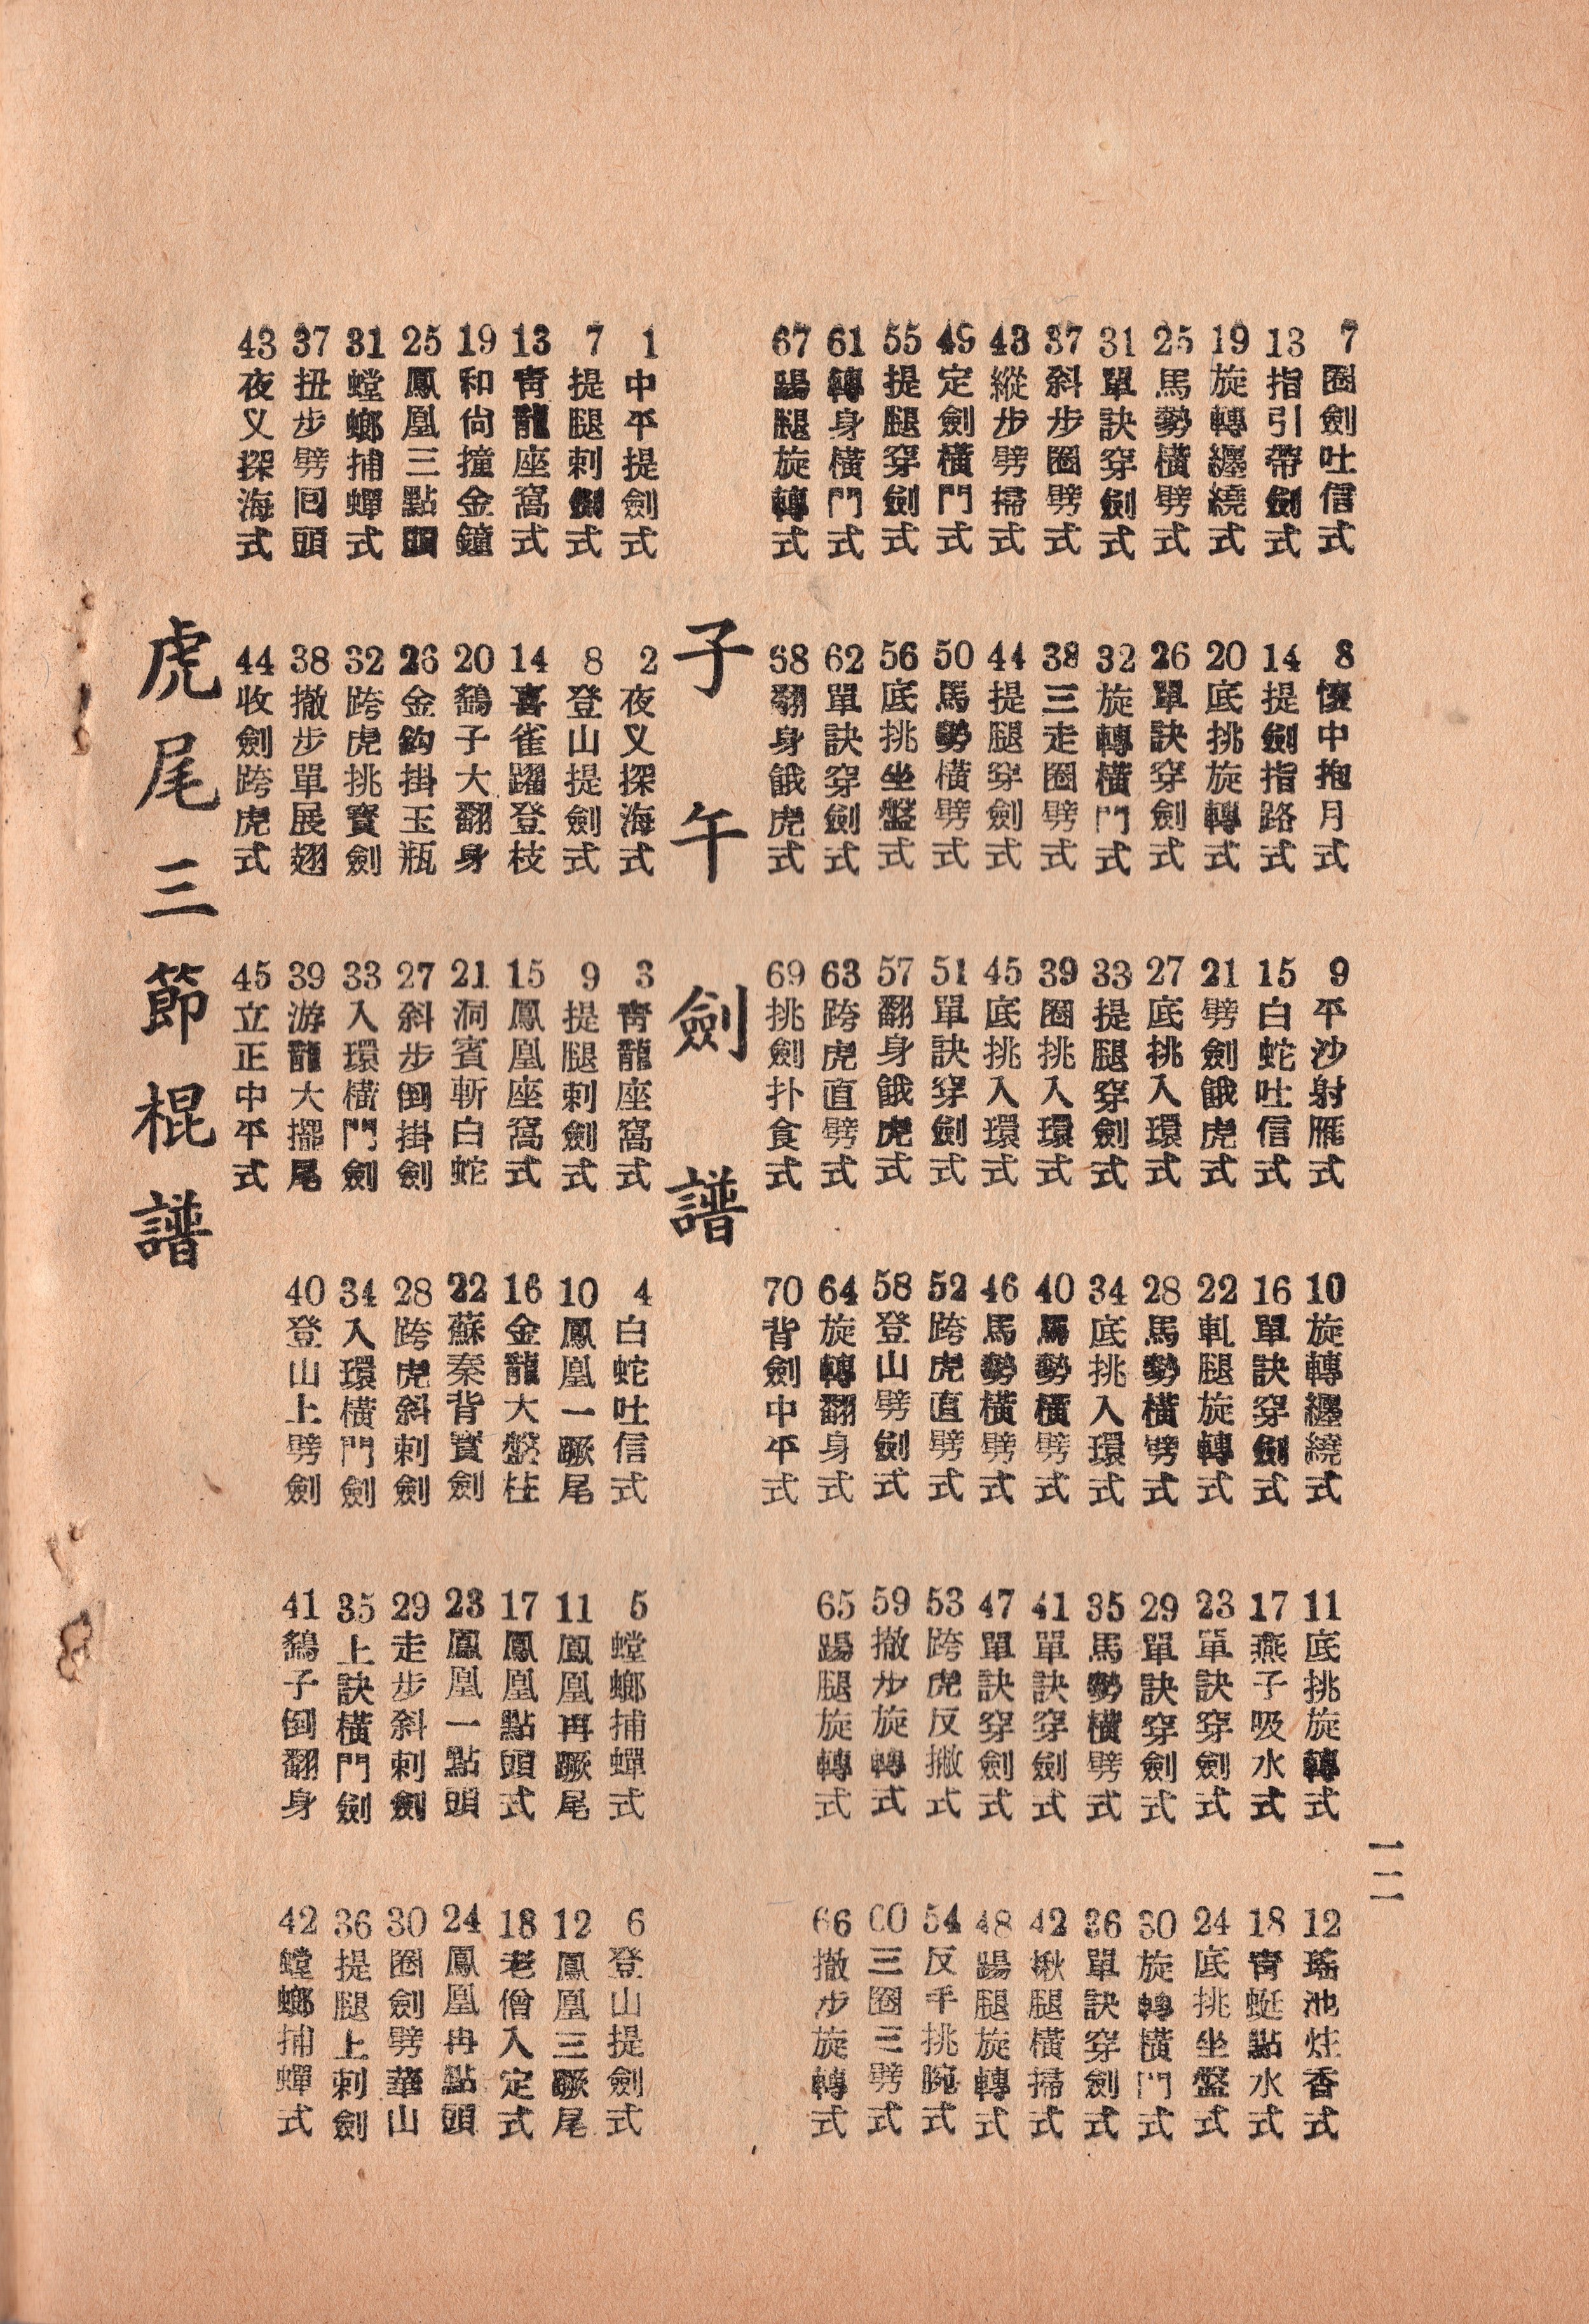 7圈劍吐信式
8懷中抱月式
9平沙射雁式
10旋轉纏繞式
11底挑旋轉式
12瑤池炷香式
13指引帶劍式
14提劍指路式
15白蛇吐信式
16單訣穿劍式
17燕子吸水式
18靑蜓點水式
19旋轉纏繞式
20底挑旋轉式
21劈劍餓虎式
22軋腿旋轉式
23單訣穿劍式
24底挑坐盤式
25馬勢橫劈式
26單訣穿劍式
27底挑入環式
28馬勢橫劈式
29單訣穿劍式
30旋轉橫門式
31單訣穿劍式
32旋轉橫門式
33提腿穿劍式
34底挑入環式
35馬勢橫劈式
36單訣穿劍式
37斜步圈劈式
38三走圈劈式
39圈挑入環式
40馬勢橫劈式
41單訣穿劍式
42楸腿橫掃式
43縱步劈掃式
44提腿穿劍式
45底挑入環式
46馬勢橫劈式
47單訣穿劍式
48踢腿旋轉式
49定劍橫門式
50馬勢橫劈式
51單訣穿劍式
52跨虎直劈式
53跨虎反撇式
54反手挑腕式
55提腿穿劍式
56底挑坐盤式
57翻身餓虎式
58登山劈劍式
59撤步旋轉式
60三圈三劈式
61轉身橫門式
62單訣穿劍式
63跨虎直劈式
64旋轉翻身式
65踢腿旋轉式
66撤步旋轉式
67踢腿旋轉式
68翻身餓虎式
69挑劍扑食式
70背劍中平式
子午劍譜
1中平提劍式
2夜叉探海式
3靑龍座窩式
4白蛇吐信式
5螳螂捕蟬式
6登山提劍式
7提腿刺劍式
8登山提劍式
9提腿刺劍式
10鳳凰一蹶尾
11鳳凰再蹶尾
12鳳凰三蹶尾
13靑龍座窩式
14喜雀躍登枝
15鳳凰座窩式
16金龍大盤柱
17鳳凰點頭式
18老僧入定式
19和尙撞金鐘
20鷂子大翻身
21洞賓斬白蛇
22蘇秦背寶劍
23鳳凰一點頭
24鳳凰再點頭
25鳳凰三點頭
26金鈎掛玉瓶
27斜步倒掛劍
28跨虎斜刺劍
29走步斜刺劍
30圈劍劈華山
31螳螂捕蟬式
32跨虎挑寶劍
33入環橫門劍
34入環橫門劍
35上訣橫門劍
36提腿上刺劍
37扭步劈回頭
38撤步單展翅
39游龍大擺尾
40登山上劈劍
41鷂子倒翻身
42螳螂捕蟬式
43夜叉探海式
44收劍跨虎式
45立正中平式
虎尾三節棍譜
一二